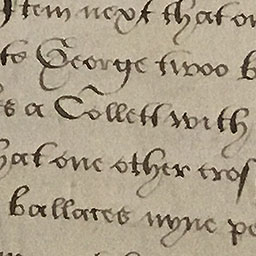 Item next that on
ts George twoo b
es a Collett with
hat one other cros
ballaces nyne pe